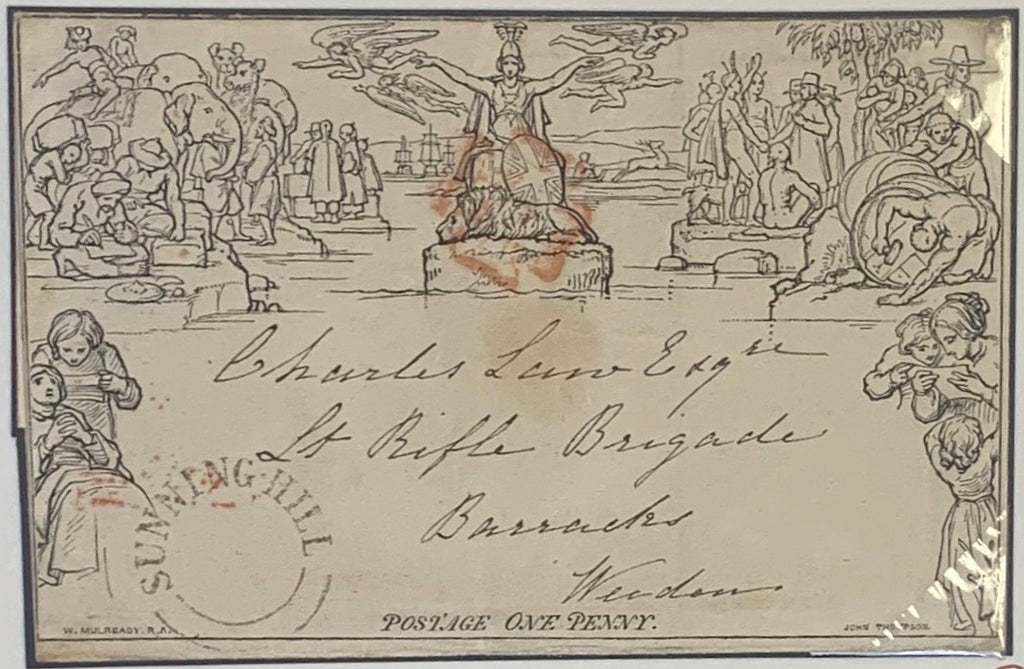 Charles Law Esqre
Lt Rifle Brigade
Barracks
Weedon
SUNNING HILL
POSTAGE ONE PENNY.
W. MULREADY. R.A.
JOHN THOMPSON.